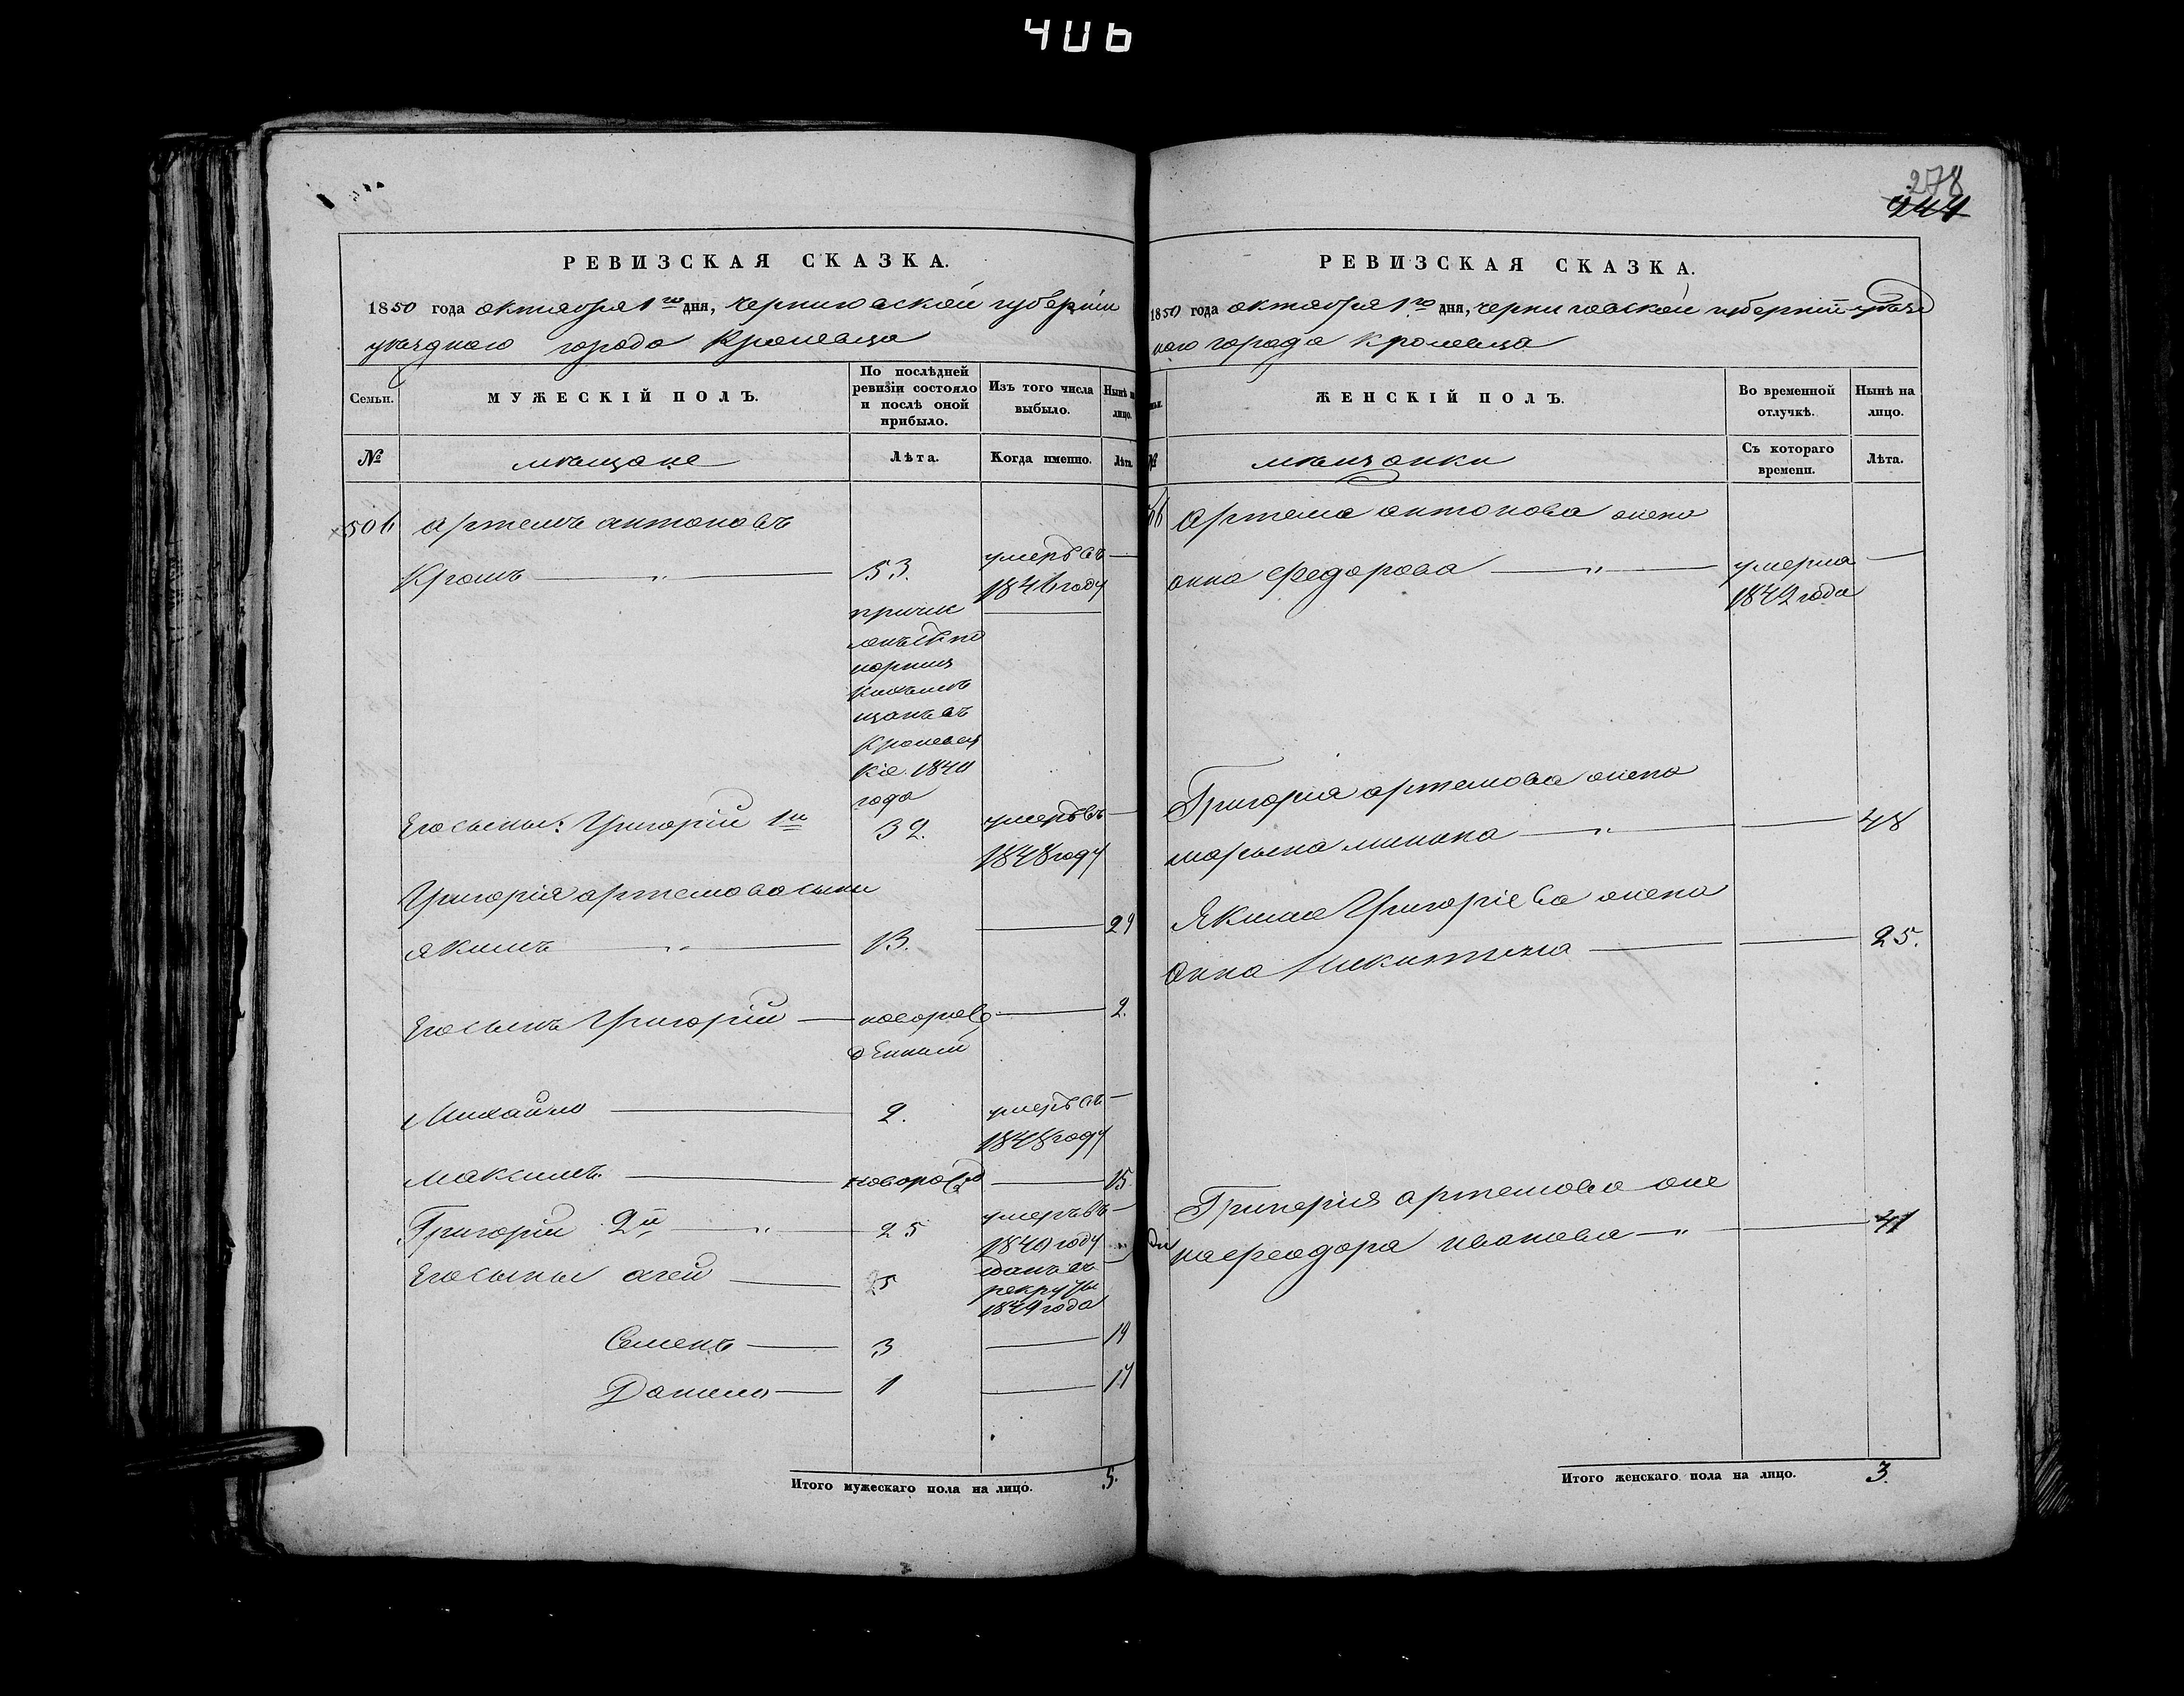 406
РЕВИЗСКАЯ СКАЗКА.
1850 года октября 1го дня, Черниговской губерніи
уѣзднаго города Кролевца
Семьи.
МУЖЕСКІЙ ПОЛЪ.
По послѣдней
ревизіи состояло
и послѣ оной
прибыло.
Изъ того числа
выбыло.
Нынѣ н
лицо.
№
мѣщане
Лѣта.
Когда именно.
Лѣта.
506 Артемъ Антоновъ
Кромъ — „ — 53. умеръ въ —
1846 году
причис
ленъ
въ
Кролевец
кіе 1840
года
Его сыны: Григорій 1й 32. умеръ въ —
1848 году
Григорія Артемова сыны
Якимъ — „ — 13. — 29
Его сынъ Григорій — новорож — 2.
денный
Михайло — 2. умеръ въ —
1848 году
Максимъ. — новорожд — 15.
Григорій 2й — „ — 25 умеръ въ —
1840 году
Его сыны — 25 сданъ въ —
рекруты
1849 года
Семенъ — 3 — 19
Данило — 1 — 17
Итого мужескаго пола на лицо. 5.
278
244
РЕВИЗСКАЯ СКАЗКА.
1850 года октября 1го дня, Черниговской губерніи уѣзд
наго города Кролевца
ЖЕНСКІЙ ПОЛЪ.
Во временной
отлучкѣ.
Нынѣ на
лицо.
№
мѣщанки
Съ котораго
времени.
Лѣта.
Артема Антонова жена
Анна Федорова — „ — умерла —
1842 года
Григорія Артемова жена
Марьяна Минина — „ — — 48
Якима Григоріева жена
Анна Никитина — — 25.
Григорія Артемова же
на Феодора Иванова — „ — 41
Итого женскаго пола на лицо. 3.